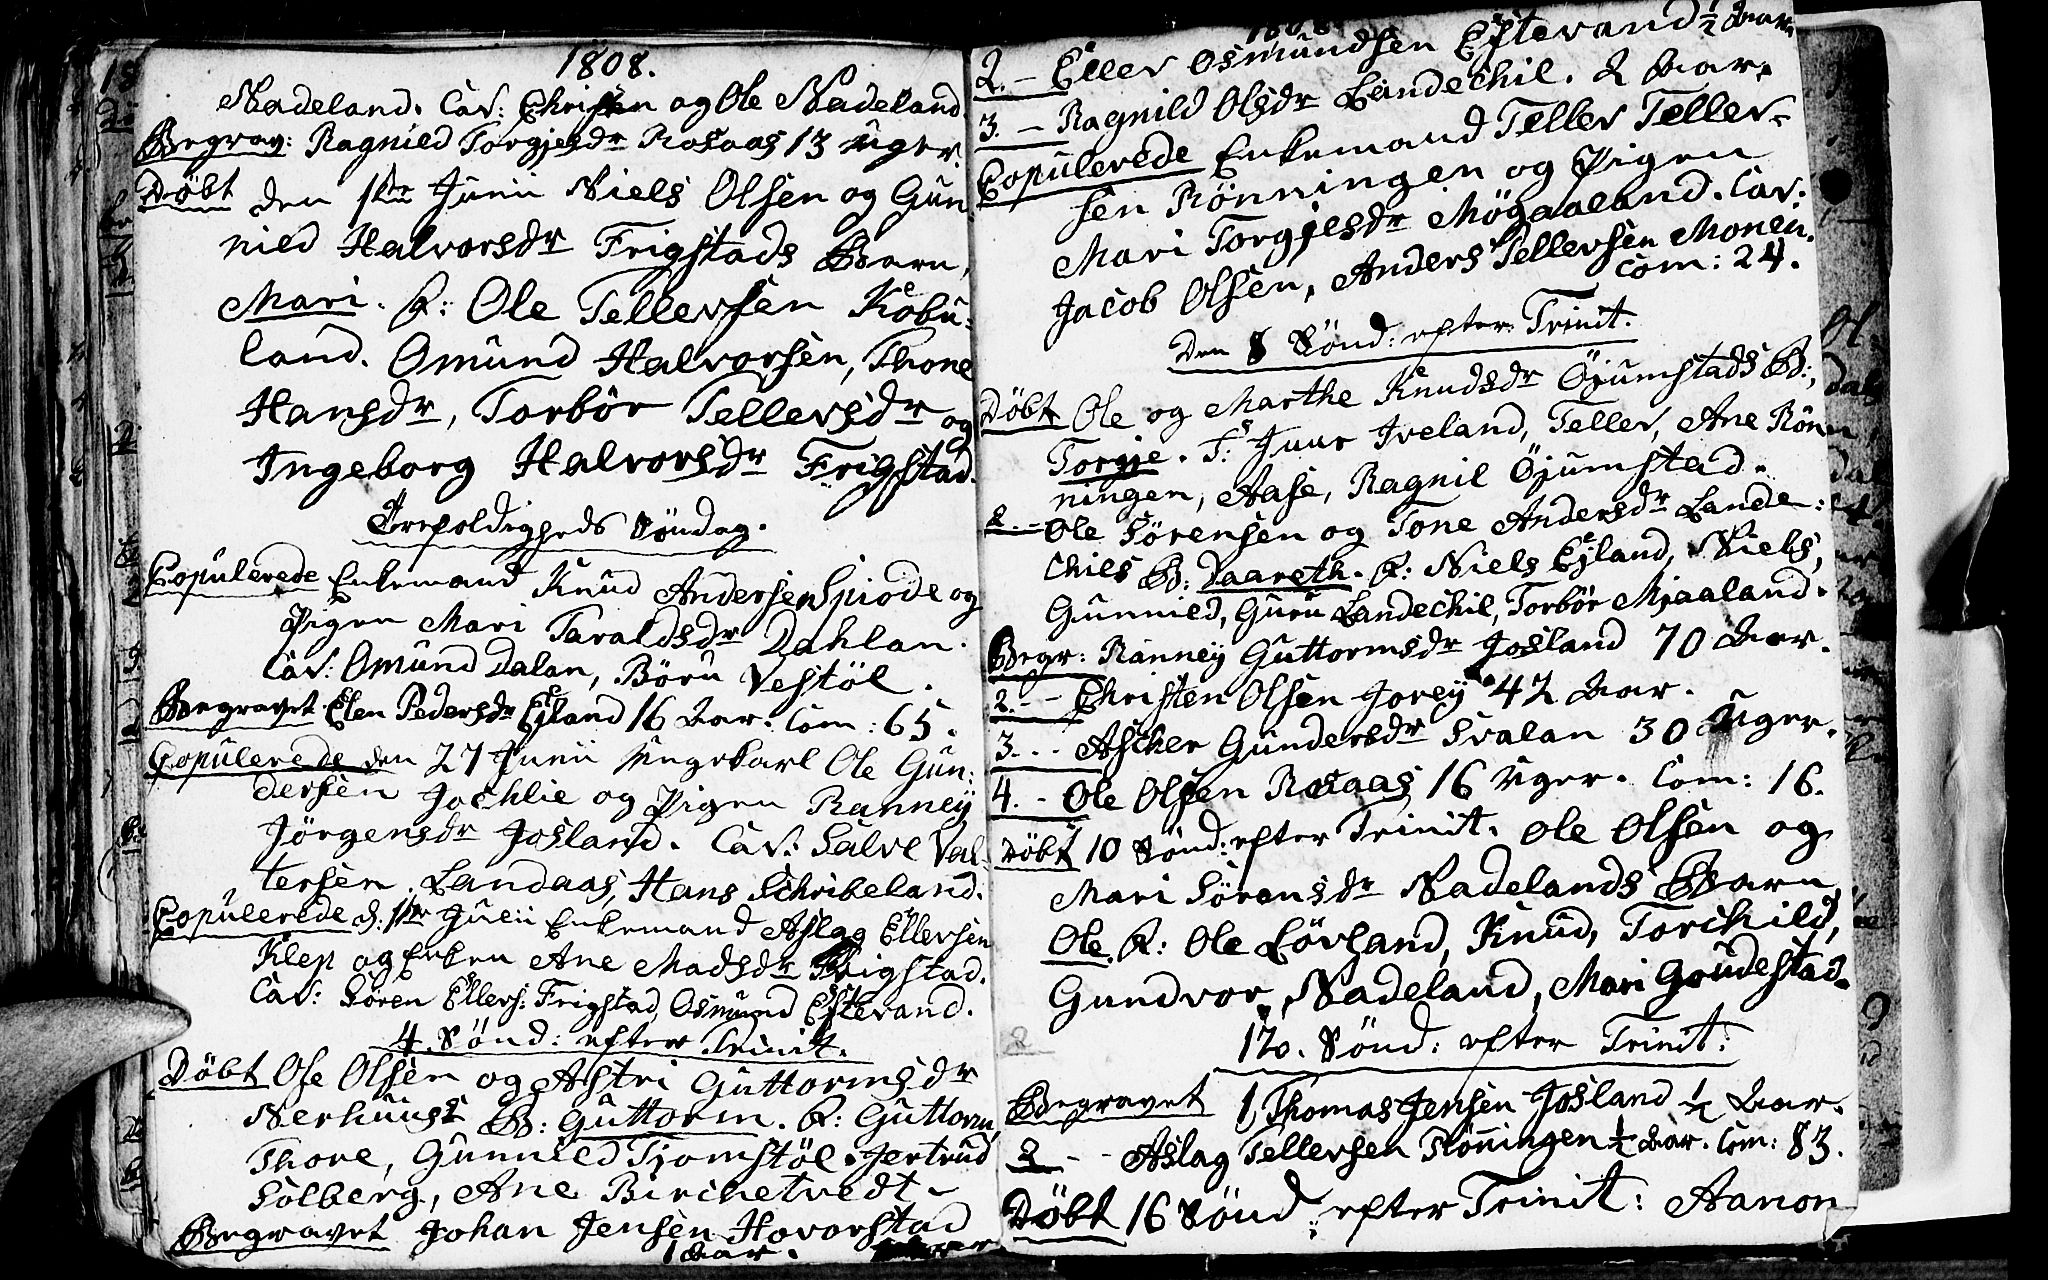 1808.
Nadeland. Cav: Christen og Ole Nadeland
Begrav: Ragnild Torgjesdr Rosaas 13 uger.
Döbt den 1ste Junii Niels Olsen og Gun
nild Halvorsdr Frigstads Barn,
Mari. F: Ole Tellersen Kobu-
land. Omund Halvorsen, Thone
Hansdr, Torbör Tellersdr og
Ingeborg Halvorsdr Frigstad.
Trefoldigheds Söndag.
Copulerede Enkemand Knud Andersen Spiode og
Pigen Mari Taraldsdr Dahlan.
Cav: Omund Dalan, Böru Vestöl.
Begravet Elen Pedersdr Ejland 16 Aar. Com: 65.
Copulerede den 27 Junii Ungekarl Ole Gun-
dersen Jochlie og Pigen Ranney
Jörgensdr Josland. Cav: Salve Val-
tersen Landaas, Hans Schribeland.
Copulerede d. 1ste Julii Enkemand Aslag Ellersen
Klep og Enken Ane Madsdr Frigstad.
Cav: Sören Ellers: Frigstad, Osmund Eftevand.
4. Sönd: efter Trinit.
Döbt Ole Olsen og Astri Guttormsdr
Nerhuus B: Guttorm. F: Guttorm,
Thore, Gunnild Tjomstöl. Jertrud
Solberg, Ane Birchetvedt.
Begravet Johan Jensen Hovorstad
1 Aar.
1808
2. - Eller Osmundsen Eftevand ½ Aar.
3. - Ragnild Olsdr Landechil. 2 Aar.
Copulerede Enkemand Teller Teller-
sen Rönningen og Pigen
Mari Torgjesdr Mögaaland. Cav:
Jacob Olsen, Anders Tellersen Monen.
Com: 24.
Den 8 Sönd: efter Trinit.
Döbt Ole og Marthe Knudsdr Öjumstads B:,
Torgje. F: Juur Iveland, Teller, Ane Rön
ningen, Aase, Ragnil Öjumstad.
2. - Ole Sörensen og Tone Andersdr Lande-
chils B: Daareth. F: Niels Ejland, Niels,
Gunnild, Guru Landechil, Torbör Mjaaland.
Begr: Ranney Guttormsdr Josland 70 Aar.
2. - - Christen Olsen Jorey 42 Aar.
3. - - Ascher Gundersdr Svalan 30 Uger.
4. - Ole Olsen Rosaas 16 Uger. Com: 16.
Döbt 10 Sönd: efter Trinit. Ole Olsen og
Mari Sörensdr Nadelands Barn,
Ole. F: Ole Lövland, Knud, Torchild,
Gundvor, Nadeland, Mari Groudestad.
12. Sönd: efter Trinit:
Begravet 1, Thomas Jensen Josland ½ Aar.
2 - - Aslag Tellersen Rönningen ½ Aar. Com: 83.
Döbt 16 Sönd: efter Trinit: Aanon